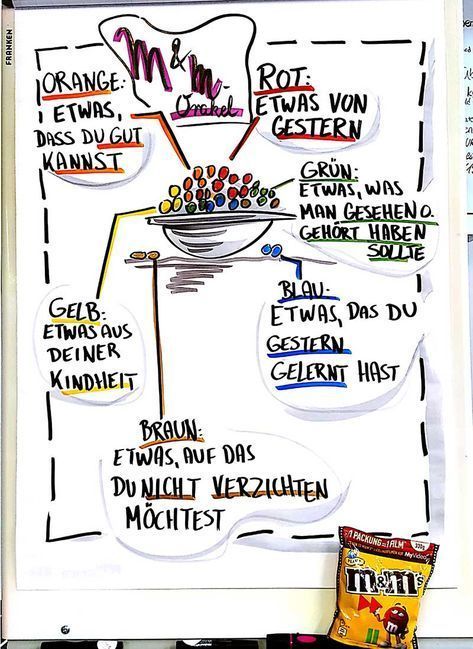 FRANKEN
m&m-
Orakel
ORANGE:
ETWAS,
DASS DU GUT
KANNST
ROT:
ETWAS VON
GESTERN
GRÜN:
ETWAS, WAS
MAN GESEHEN O.
GEHÖRT HABEN
SOLLTE
GELB:
ETWAS AUS
DEINER
KINDHEIT
BLAU:
ETWAS, DAS DU
GESTERN
GELERNT HAST
BRAUN:
ETWAS, AUF DAS
DU NICHT VERZICHTEN
MÖCHTEST
1 PACKUNG = 1 FILM
MyVideo
m&m's